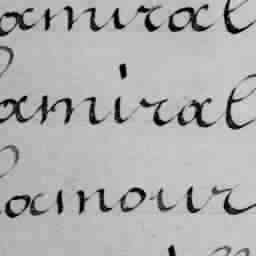 amiral
amiral
amour